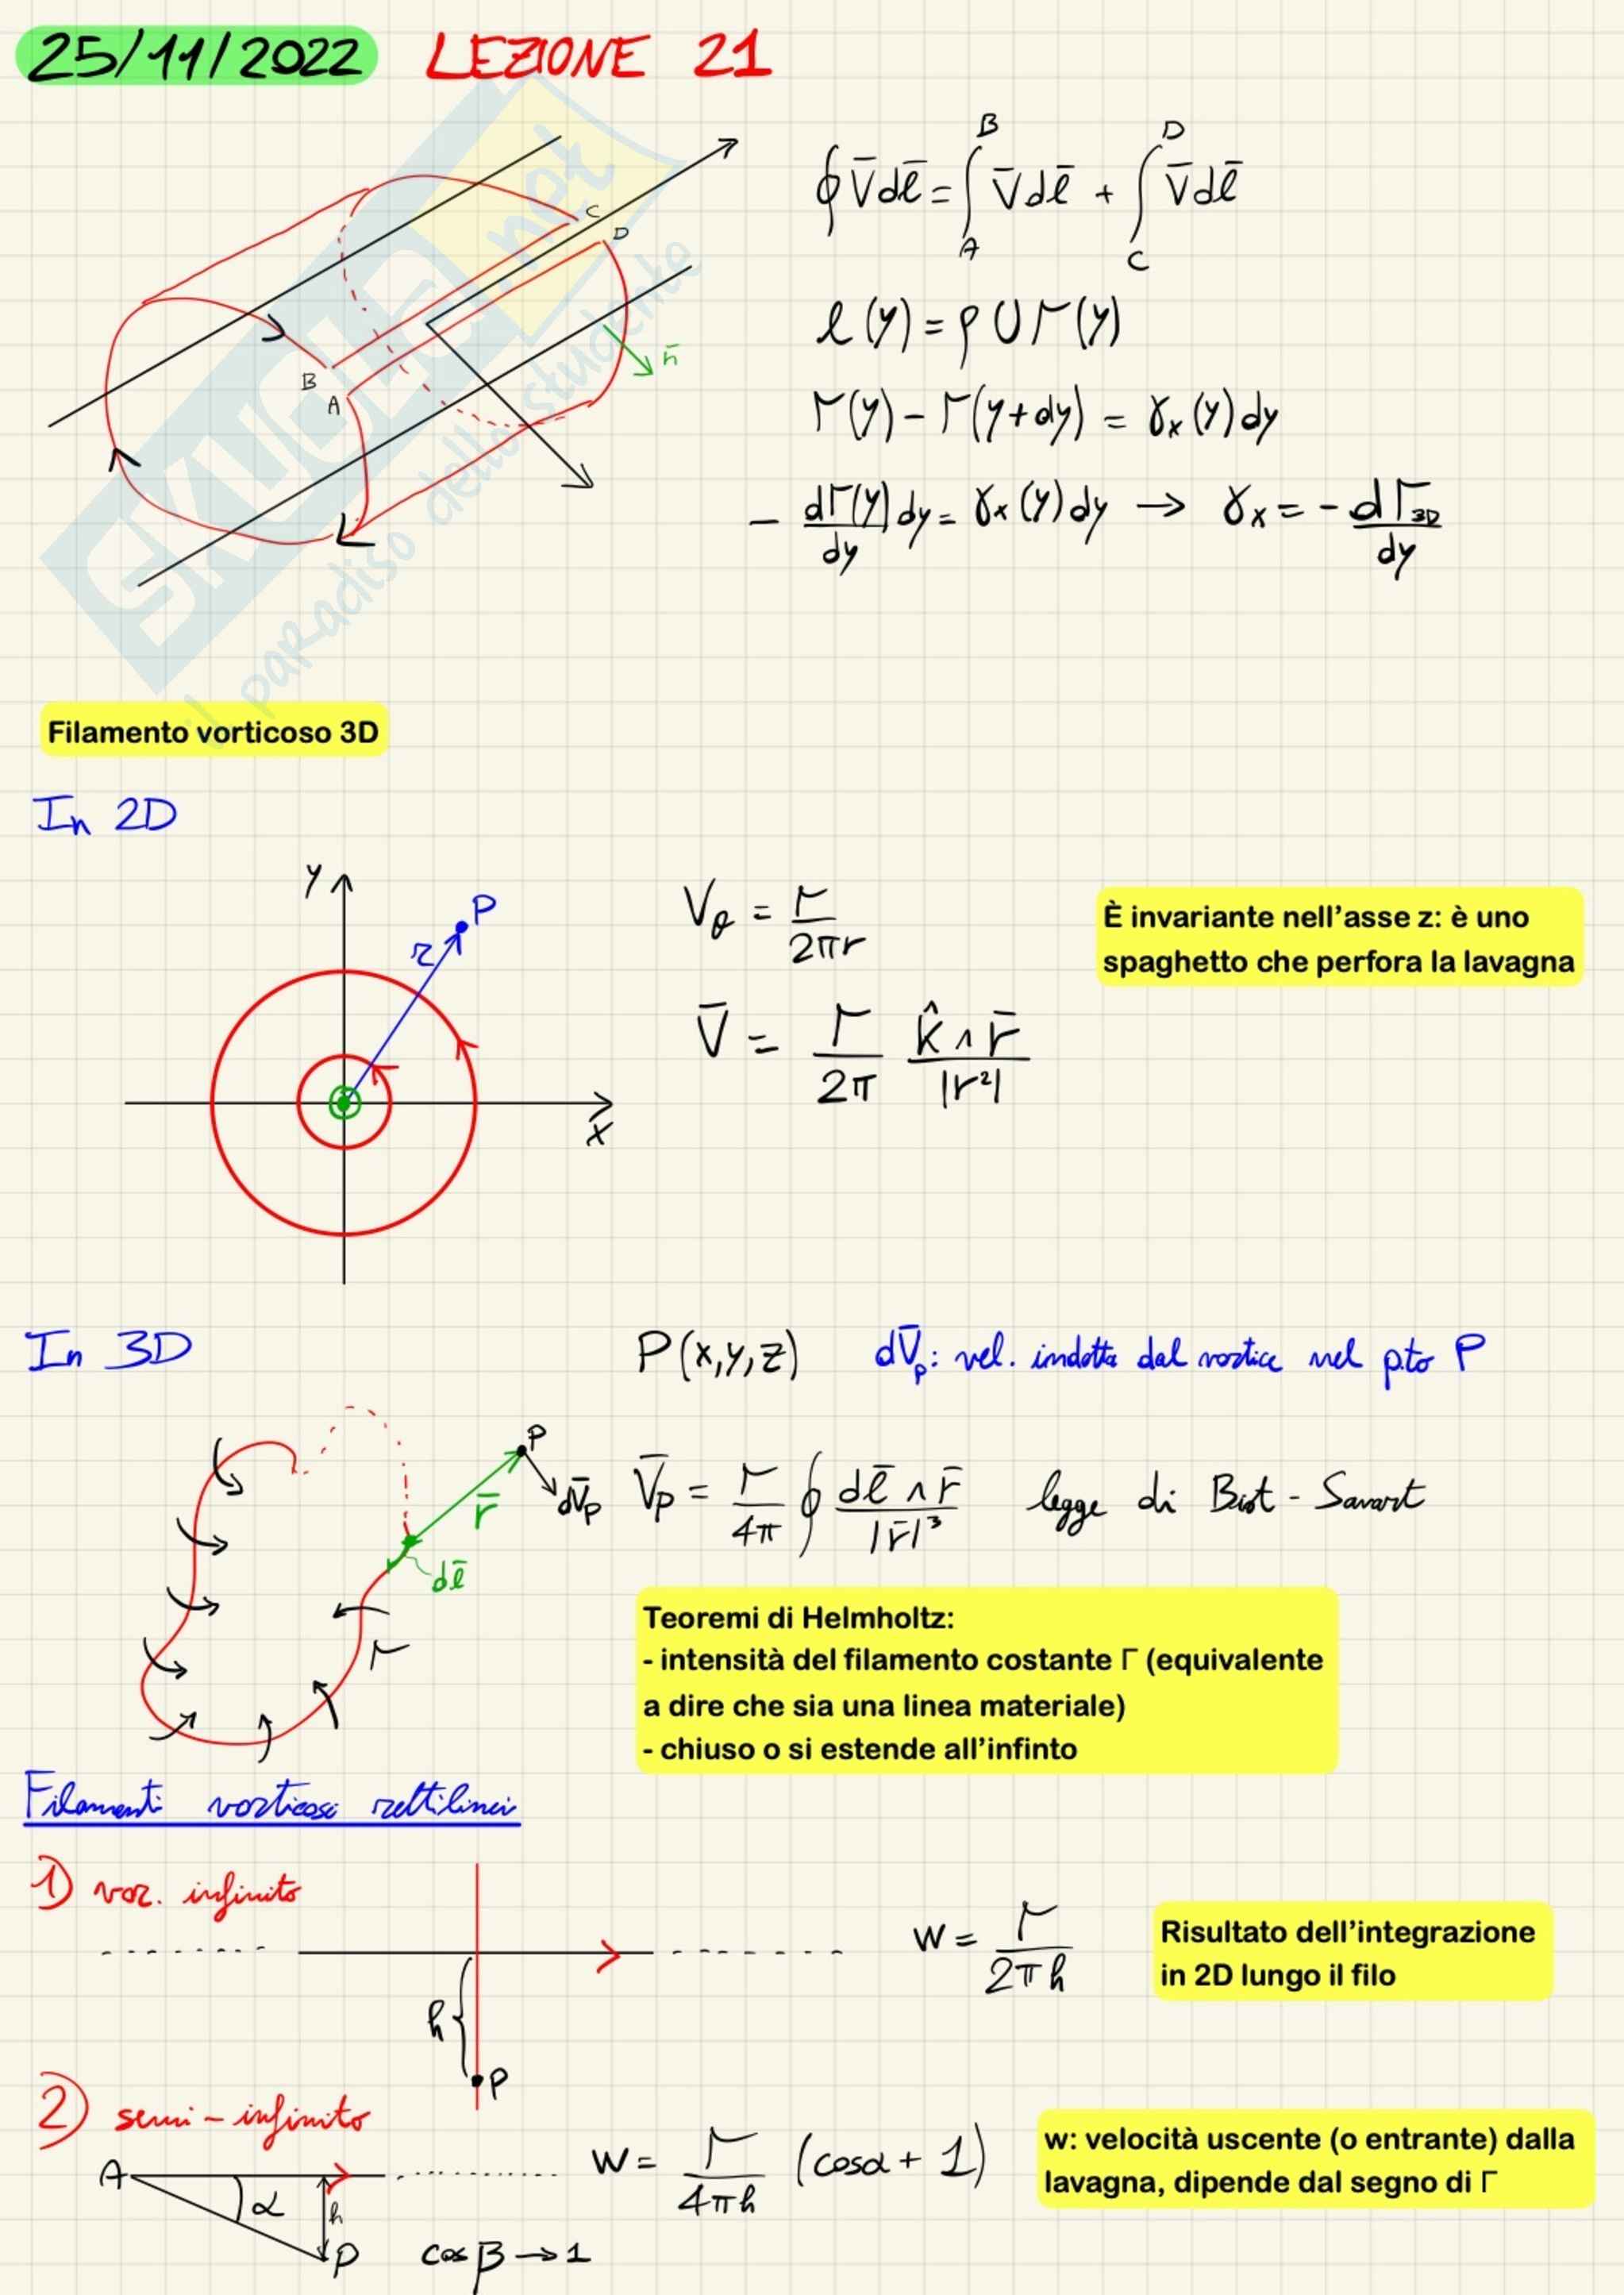 25/11/2022 LEZIONE 21
SKUOLA.net
il paradiso dello studente
C
D
B
A
n̄
∮ V̄dℓ̄ = ∫_A^B V̄dℓ̄ + ∫_C^D V̄dℓ̄
ℓ(y) = ρUΓ(y)
Γ(y) - Γ(y+dy) = γx(y)dy
- dΓ(y)/dy dy = γx(y)dy → γx = - dΓ3D/dy
Filamento vorticoso 3D
In 2D
y
P
r
x
Vθ = Γ/2πr
È invariante nell'asse z: è uno
spaghetto che perfora la lavagna
V̄ = Γ/2π k̂∧r̄/|r²|
In 3D
P(x,y,z) dV̄p: vel. indotta dal vortice nel p.to P
P
r̄
dV̄p
dℓ̄
Γ
V̄p = Γ/4π ∮ dℓ̄∧r̄/|r̄|³ legge di Biot - Savart
Teoremi di Helmholtz:
- intensità del filamento costante Γ (equivalente
a dire che sia una linea materiale)
- chiuso o si estende all'infinto
Filamenti vorticosi rettilinei
1) vor. infinito
h
P
w = Γ/2πh
Risultato dell'integrazione
in 2D lungo il filo
2) semi-infinito
A
α
h
P
w = Γ/4πh (cosα + 1)
cosβ → 1
w: velocità uscente (o entrante) dalla
lavagna, dipende dal segno di Γ